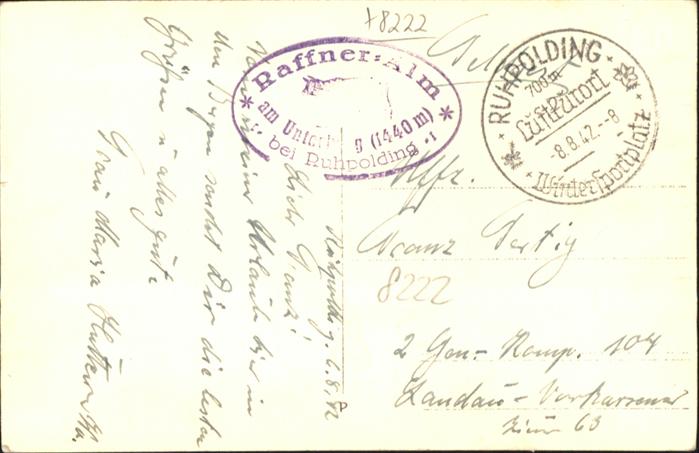 +8222
Raffner-Alm
am Unterbg (1440 m)
bei Ruhpolding
RUHPOLDING
700 m
Luftkurort
-8.8.42.--8
Wintersportplatz
Ruhpolding, 6.8.42
Lieber Franz!
Von meiner Urlaub hier in
den Bergen sendet Dir die besten
Grüßen u alles gute
Frau Maria
Uffz.
Franz Pertig
8222
2 Gen.- Komp. 107
Landau-
Zim 63